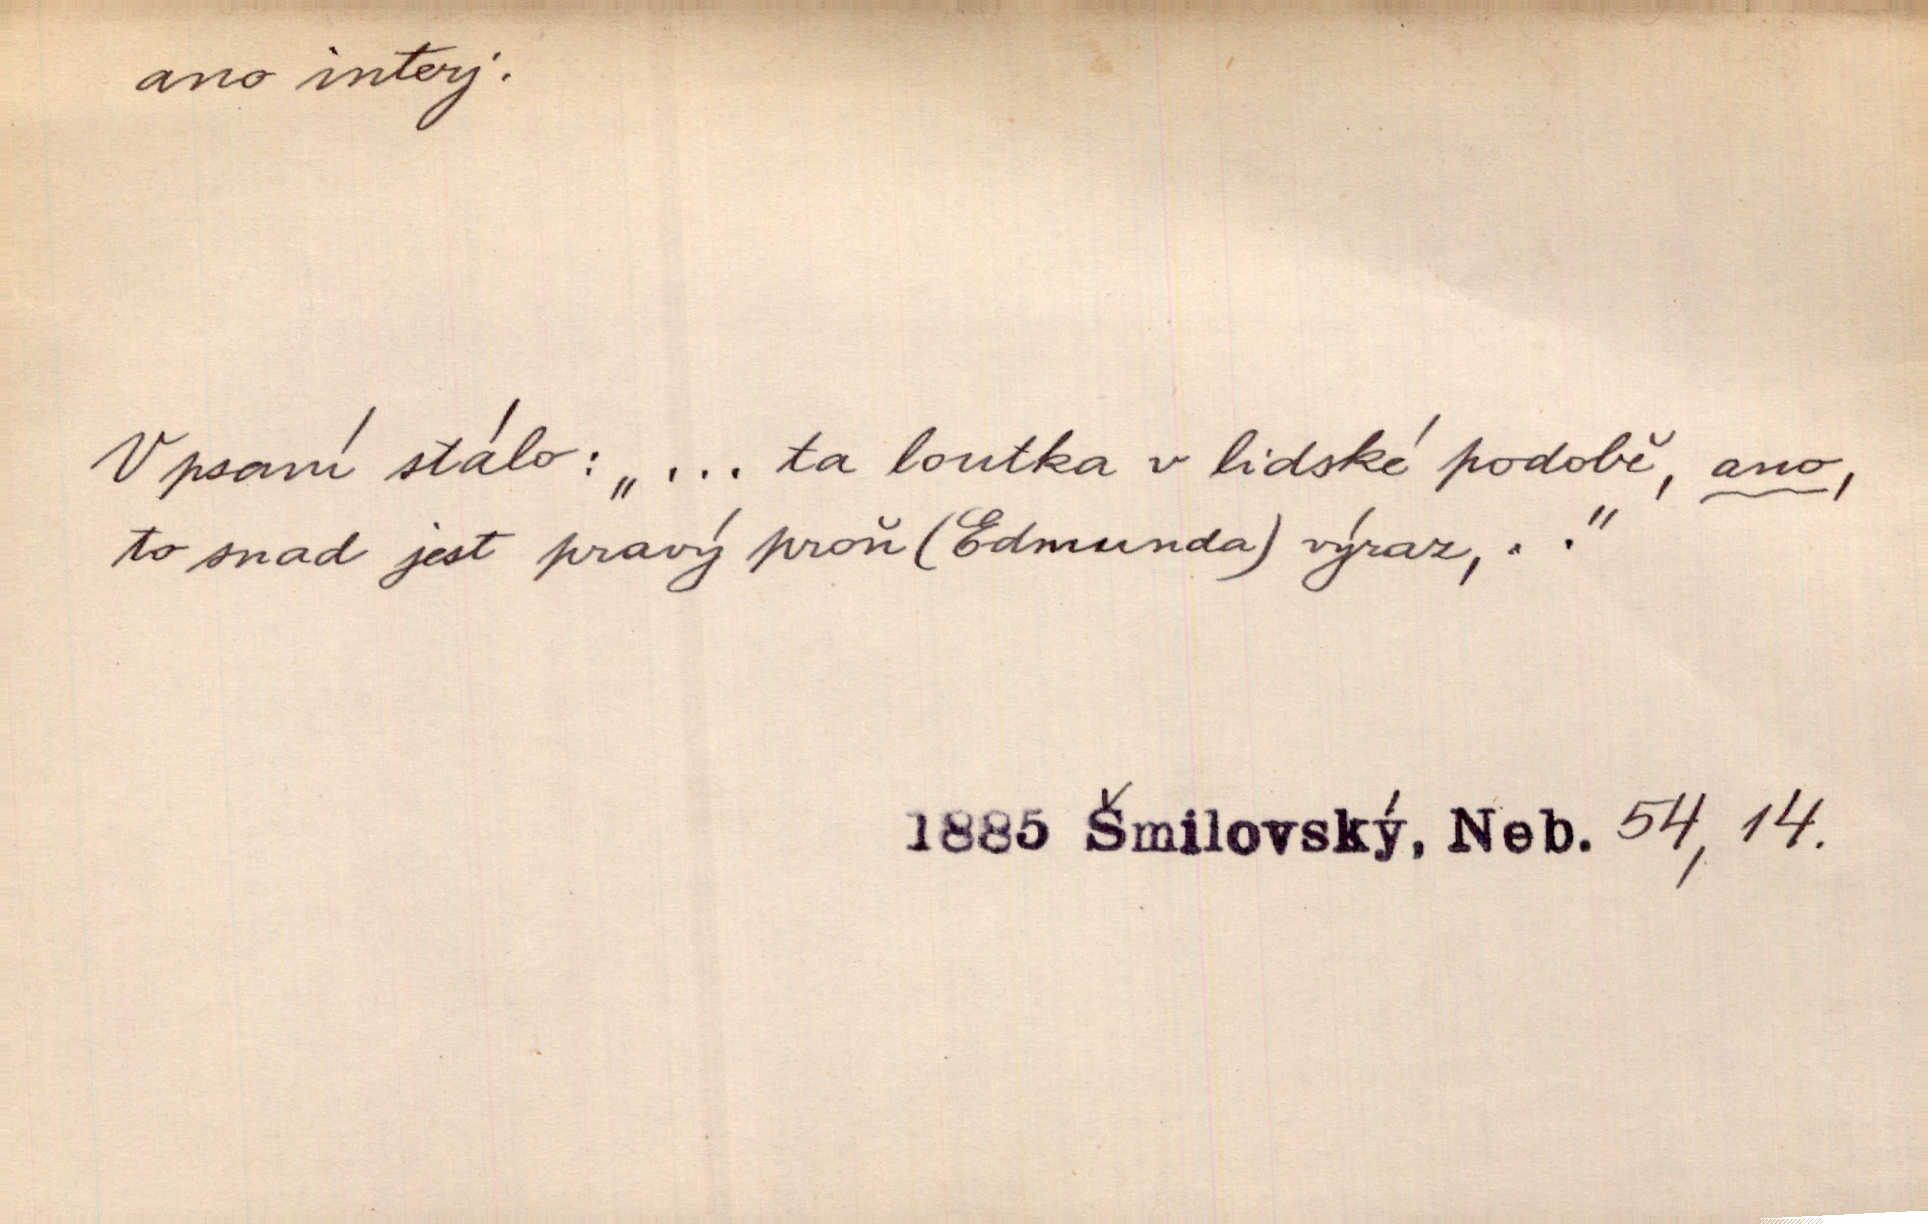 ano interj.
V psaní stálo: „ ... ta loutka v lidské podobě, ano,
to snad jest pravý proň (Edmunda) výraz, . ."
1885 Šmilovský, Neb. 54, 14.